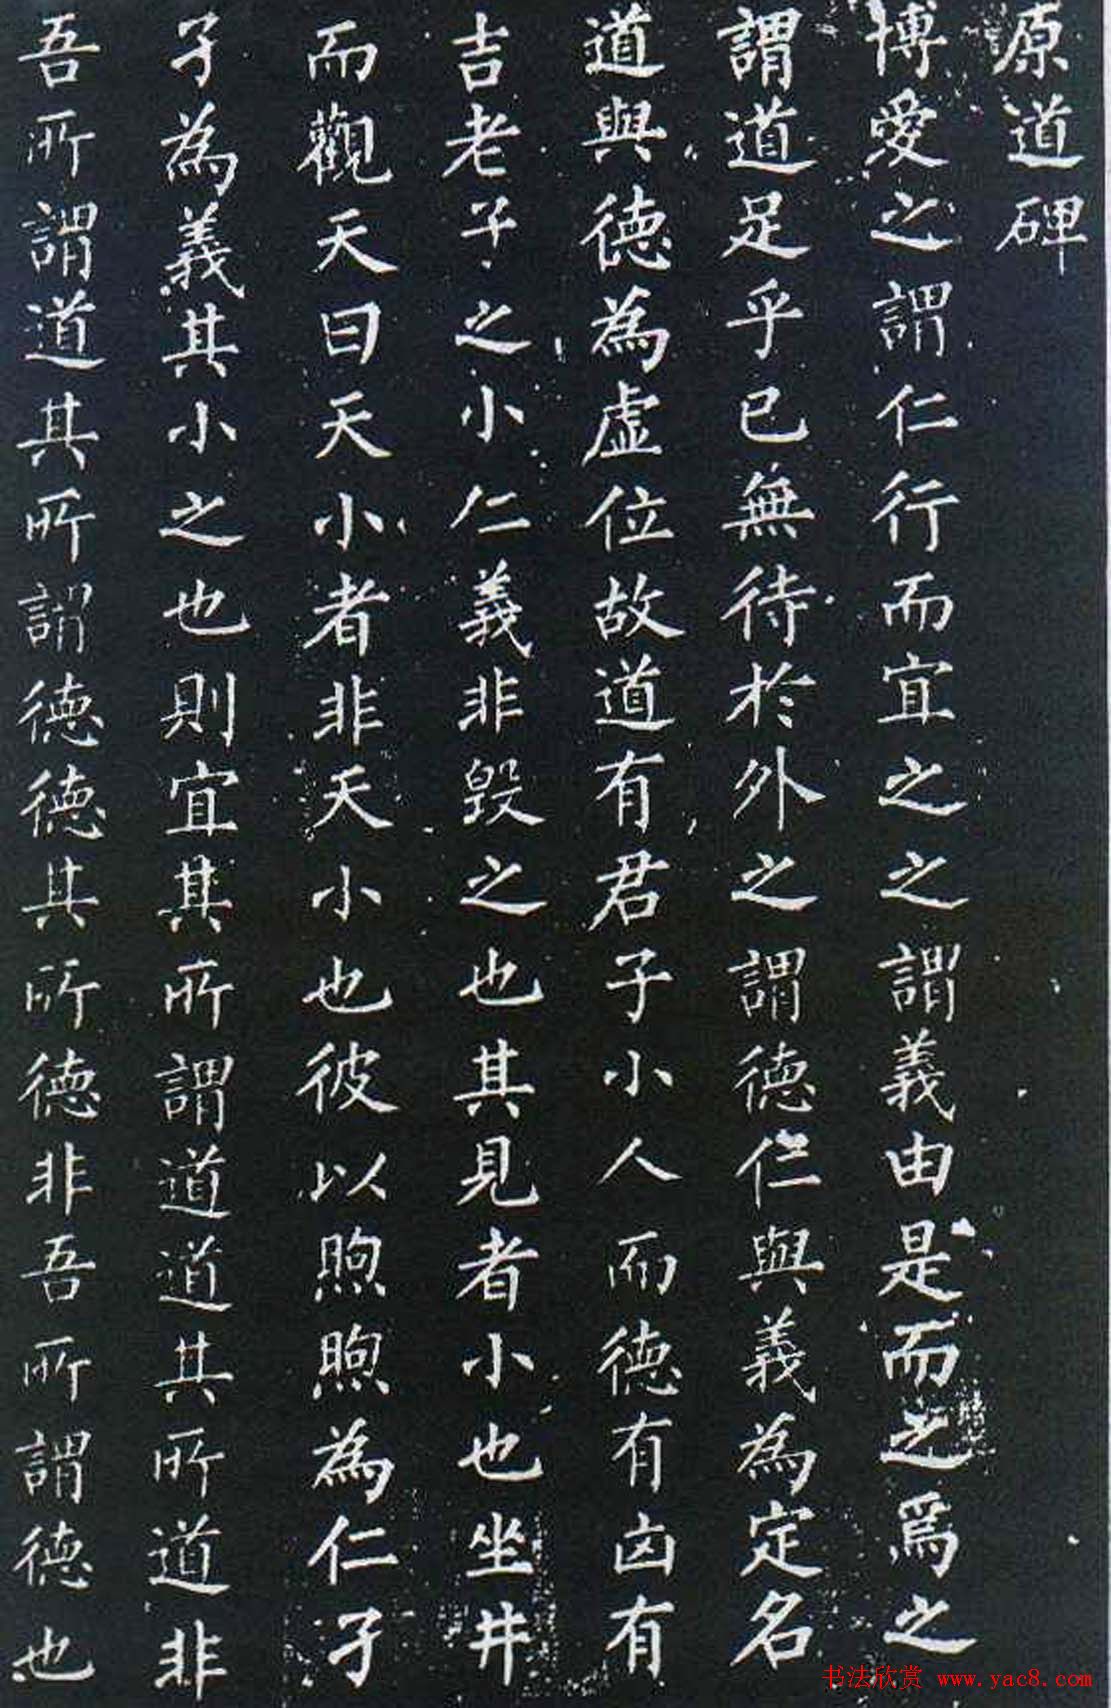 原道碑
博愛之謂仁行而宜之之謂義由是而之爲之
謂道足乎已無待於外之謂德仁與義為定名
道與德為虛位故道有君子小人而德有凶有
吉老子之小仁義非毀之也其見者小也坐井
而觀天曰天小者非天小也彼以煦煦為仁孑
孑為義其小之也則宜其所謂道道其所道非
吾所謂道其所謂德德其所德非吾所謂德也
书法欣赏 www.yac8.com